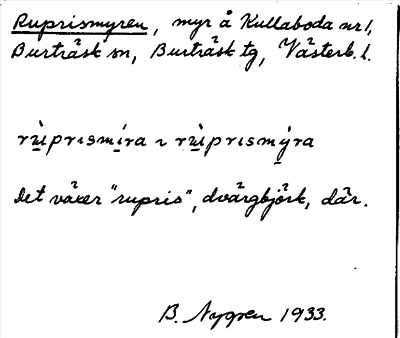 Ruprismyren, myr å Kullaboda nr 1,
Burträsk sn, Burträsk tg, Västerb. l.
rù̱prısmi̱ra ı rù̱prısmy̱ra
det växer "rupris", dvärgbjörk, där.
B. Nygren 1933.